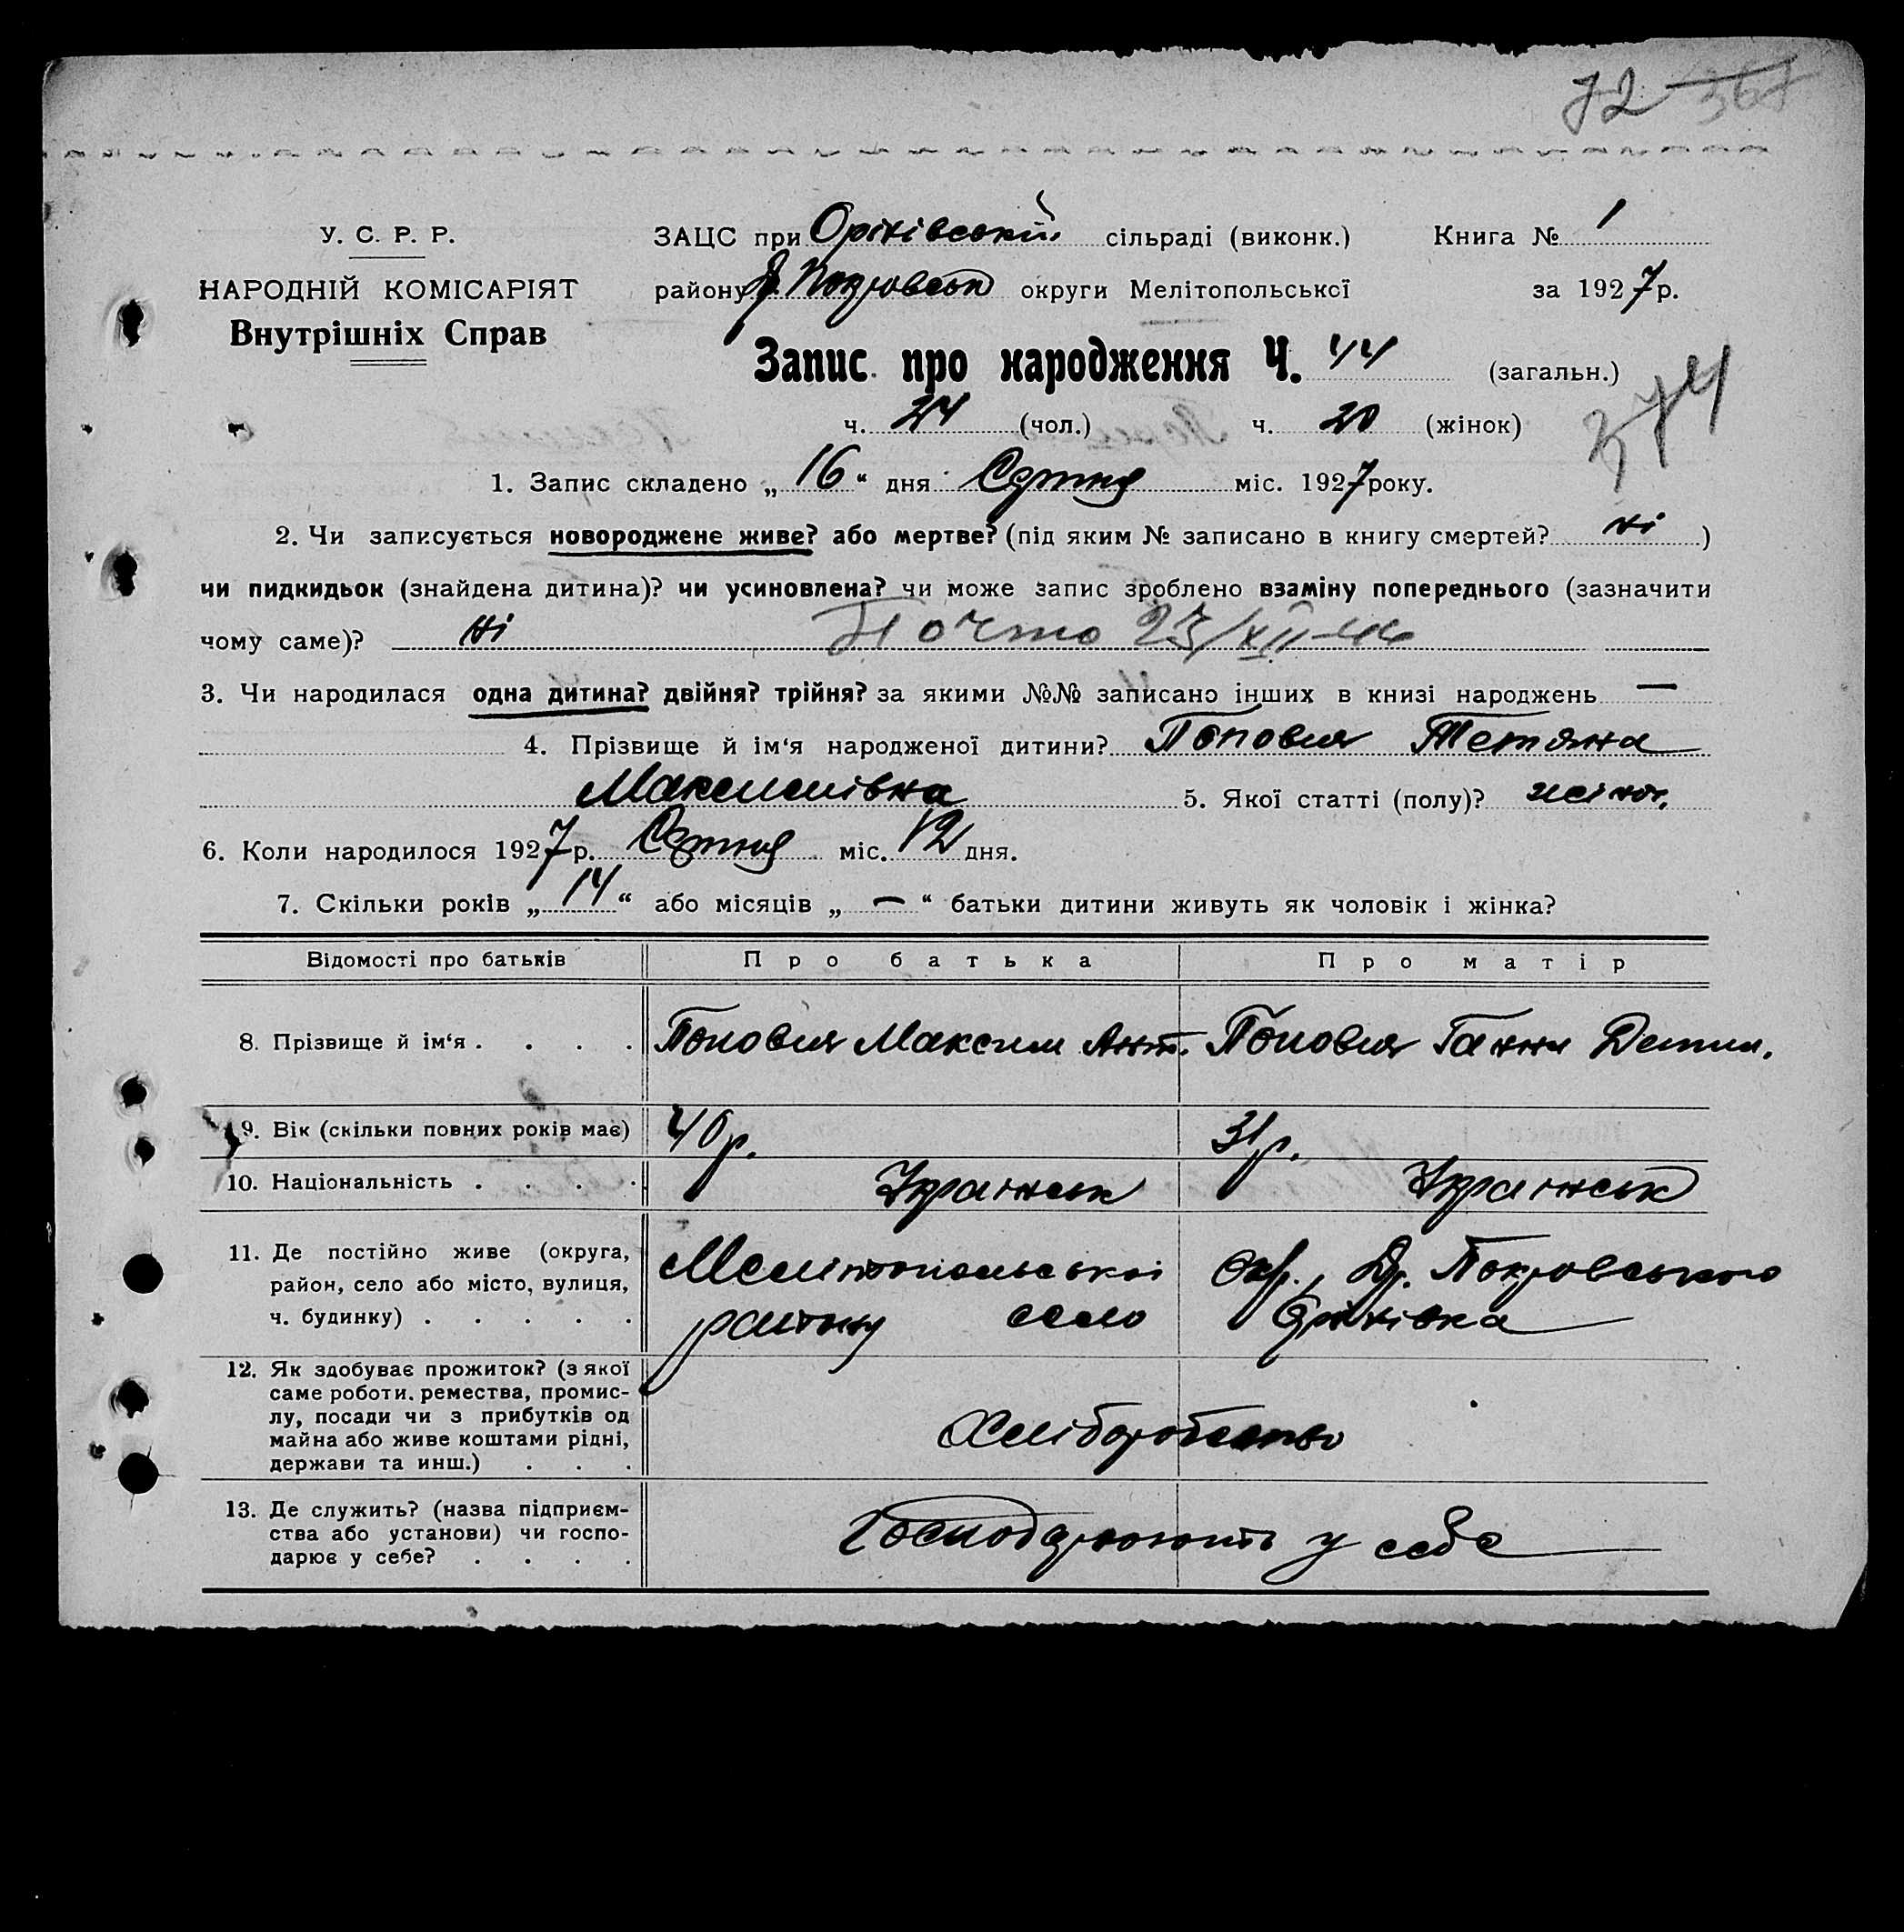 72 367
У. С. Р. Р.
НАРОДНІЙ КОМІСАРІЯТ
Внутрішніх Справ
ЗАЦС при Оріхівській сільраді (виконк.) Книга № 1
району Покровськ округи Мелітопольської за 1927 р.
Запис про народження Ч. 44 (загальн.)
374
ч. 24 (чол.) ч. 20 (жінок)
1. Запис складено „16“ дня Серпня міс. 1927 року.
2. Чи записується новороджене живе? або мертве? (під яким № записано в книгу смертей? ні )
чи пидкидьок (знайдена дитина)? чи усиновлена? чи може запис зроблено взаміну попереднього (зазначити
чому саме)? ні 23/XII-46
3. Чи народилася одна дитина? двійня? трійня? за якими №№ записано інших в книзі народжень —
4. Прізвище й ім‘я народженої дитини? Тетяна
Максимівна 5. Якої статті (полу)? жіноч.
6. Коли народилося 1927 р. Серпня міс. 12 дня.
7. Скільки років „14“ або місяців „—“ батьки дитини живуть як чоловік і жінка?
Відомості про батьків Про батька Про матір
8. Прізвище й ім‘я . . . . Максим Ант. Ганна
9. Вік (скільки повних років має) 40 р. 31 р.
10. Національність . . . . Українськ Українськ
11. Де постійно живе (округа,
район, село або місто, вулиця,
ч. будинку) . . . . .
Мелітопольської окр., Покровського
району село Оріхівка
12. Як здобуває прожиток? (з якої
саме роботи. ремества, промис-
лу, посади чи з прибутків од
майна або живе коштами рідні,
держави та инш.) . . .
Хліборобство
13. Де служить? (назва підприєм-
ства або установи) чи госпо-
дарює у себе? . . . .
Господарюють у себе